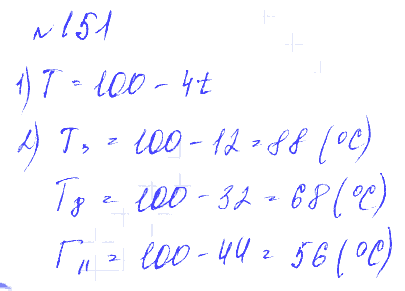 №151
1) T = 100 - 4t
2) T₃ = 100 - 12 = 88 (°C)
T₈ = 100 - 32 = 68 (°C)
T₁₁ = 100 - 44 = 56 (°C)